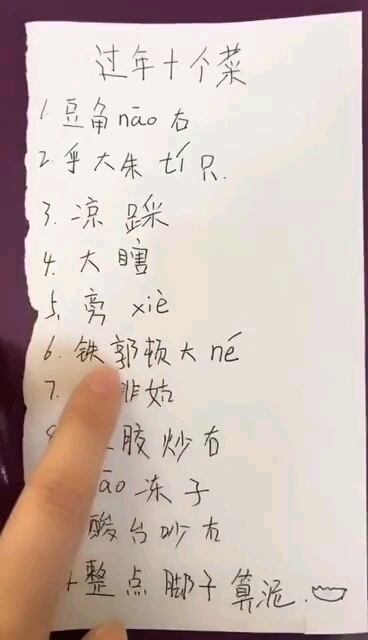 过年十个菜
1. 豆角 nāo 右
2. 乎大朱 tí 只.
3. 凉踩
4. 大瞎
5. 旁 xiè
6. 铁郭顿大 né
7. 姑
胶炒右
āo 冻子
酸台吵右
+整点脚子算泥.